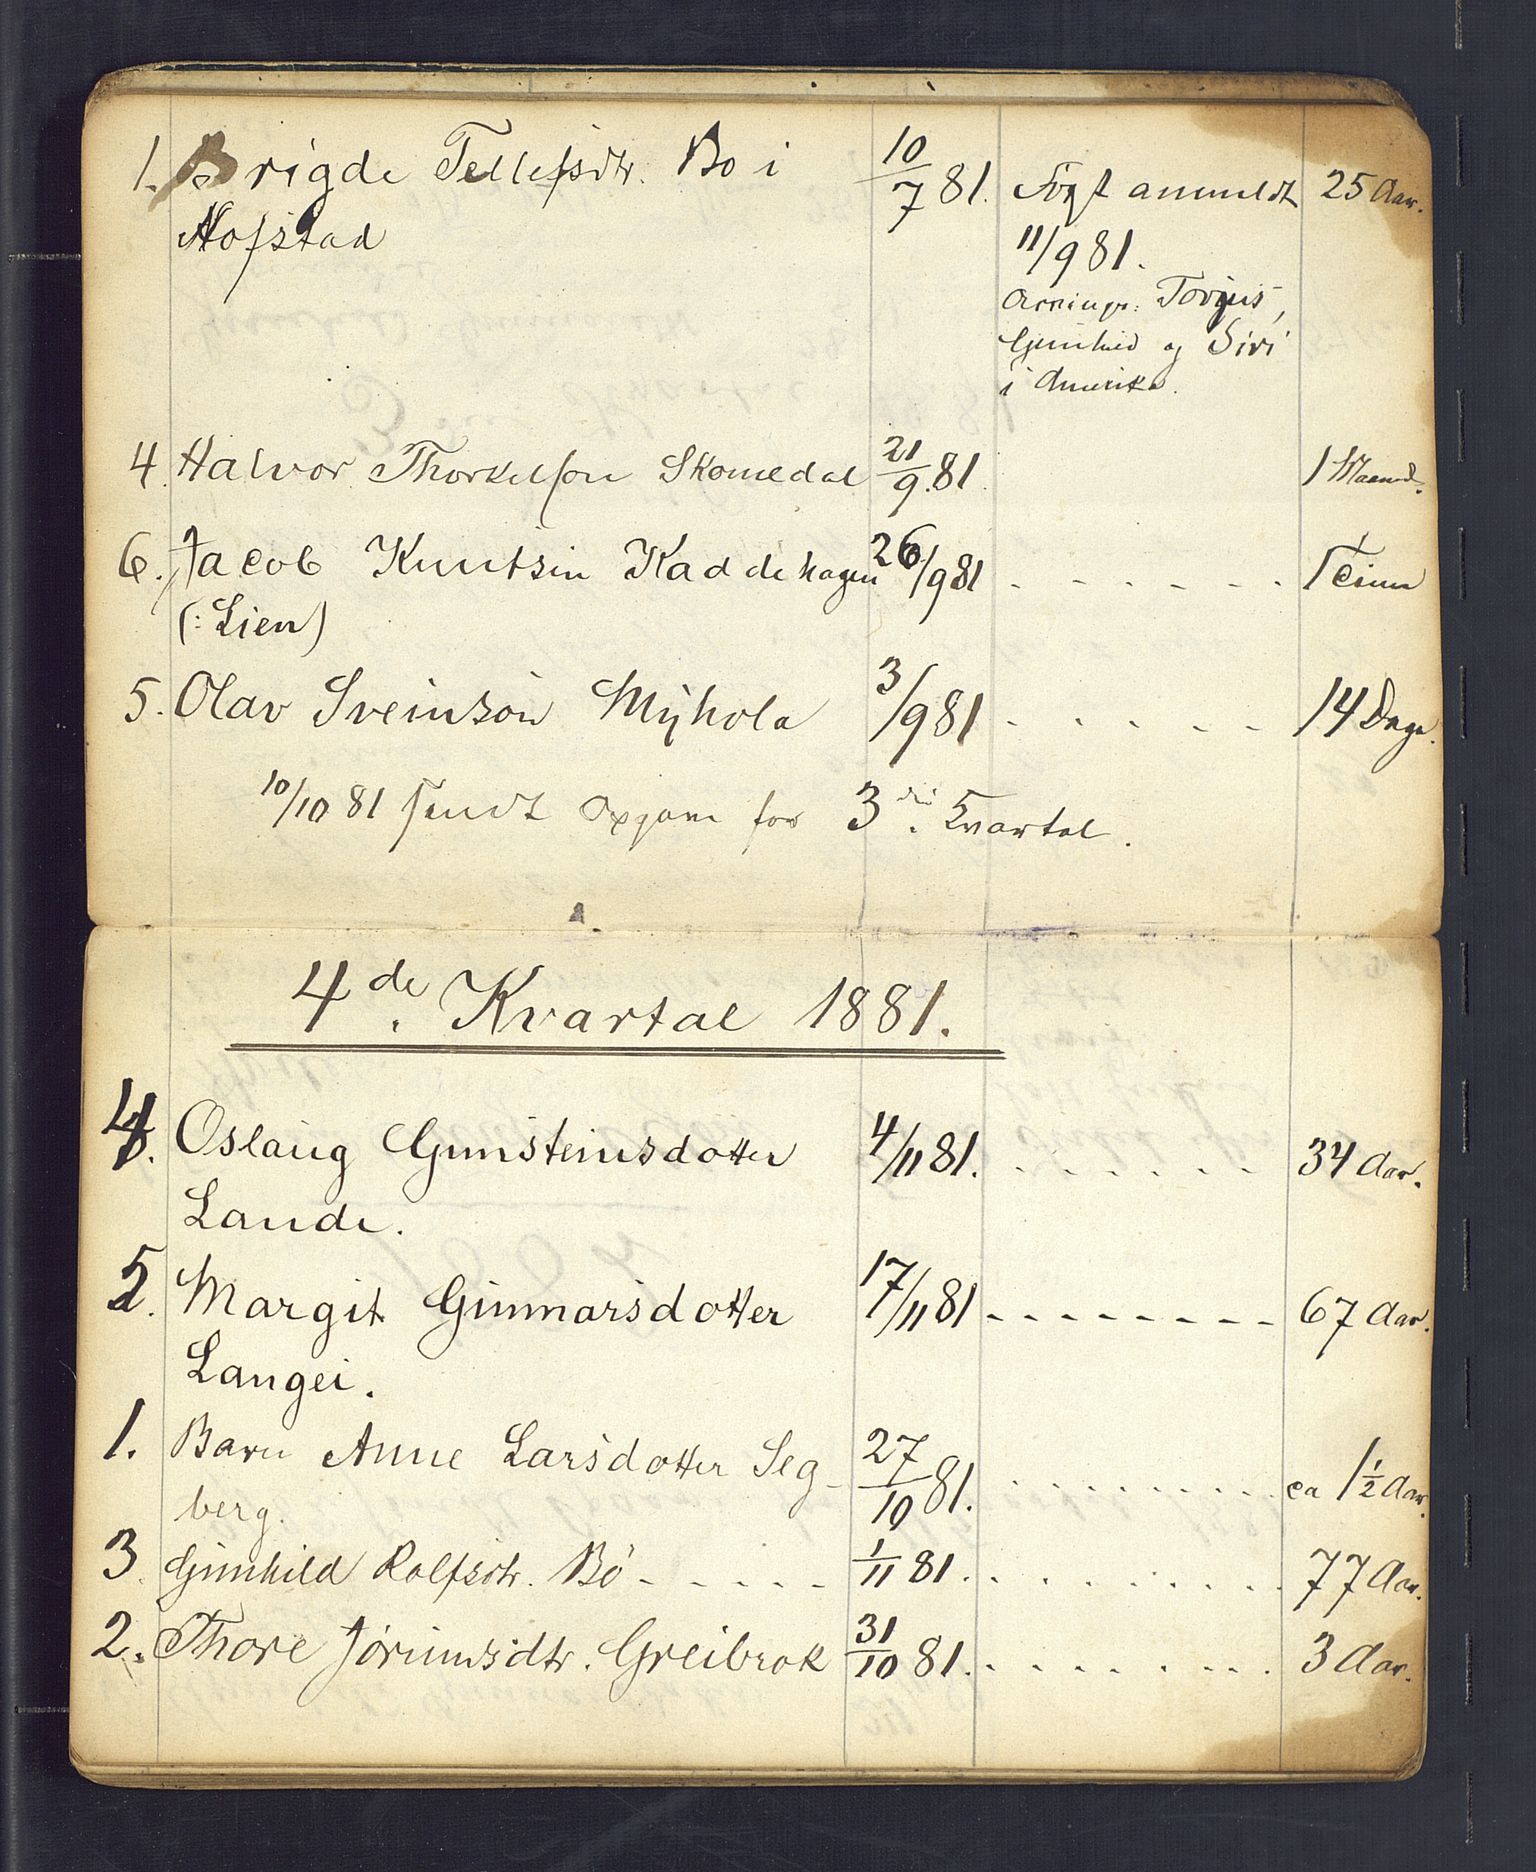 1. Brigde Tellefsdtr. Bo i 10/7 81. Fogt anmeldt 25 Aar.
Hofstad 11/9 81.
Arvinger: Torjus,
Gunhild og Siri
i Amerika.
4. Halvor Thorkelson Skomedal 21/9.81. 1 Maaned.
6. Jacob Knutsen Kaddehagen 26/9 81 . - - - - - - 1 Time
(: Lien)
5. Olav Sveinson Myhola 3/9 81 - . . . - - 14 Dage.
10/10 81 sendt Opgave for 3die. Kvartal.
4de. Kvartal 1881.
4. Oslaug Gunsteinsdotter 4/11 81. . . . . . - - 34 Aar.
Lande.
5. Margit Gunnarsdotter 17/11 81 - - - - - - - - 67 Aar.
Langei.
1. Barn Anne Larsdotter Seg- 27/10 81. . . . . . . . . ca 1½ Aar.
berg.
3. Gunhild Rolfsdtr. Bö - - - - - 1/11 81. . . . . . . . 77 Aar.
2. Thore Jörunsdtr. Greibrok 31/10 81. . . . . . . . 3 Aar.